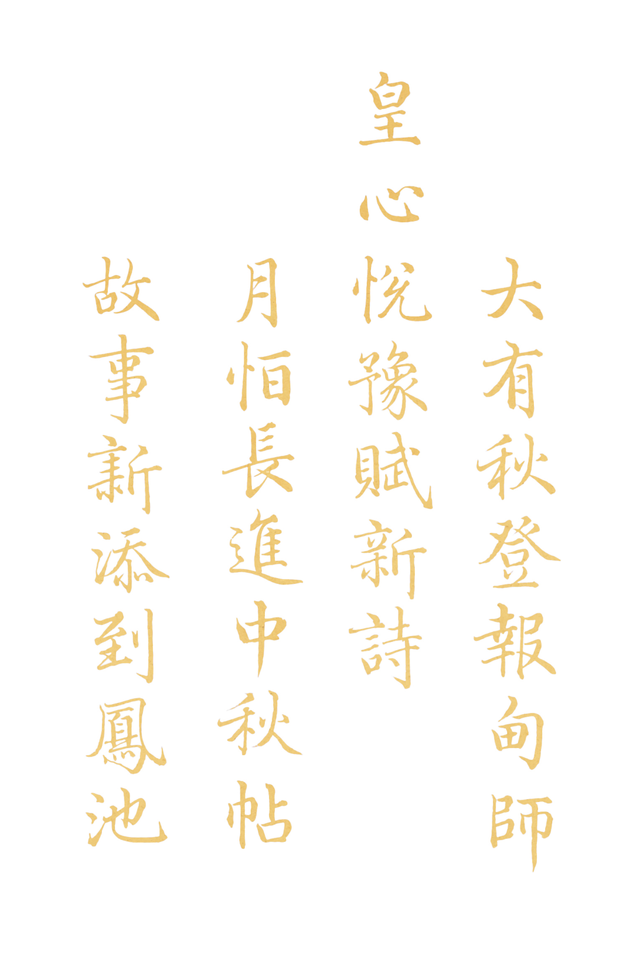 大有秋登報甸師
皇心悅豫賦新詩
月怕長進中秋帖
故事新添到鳳池